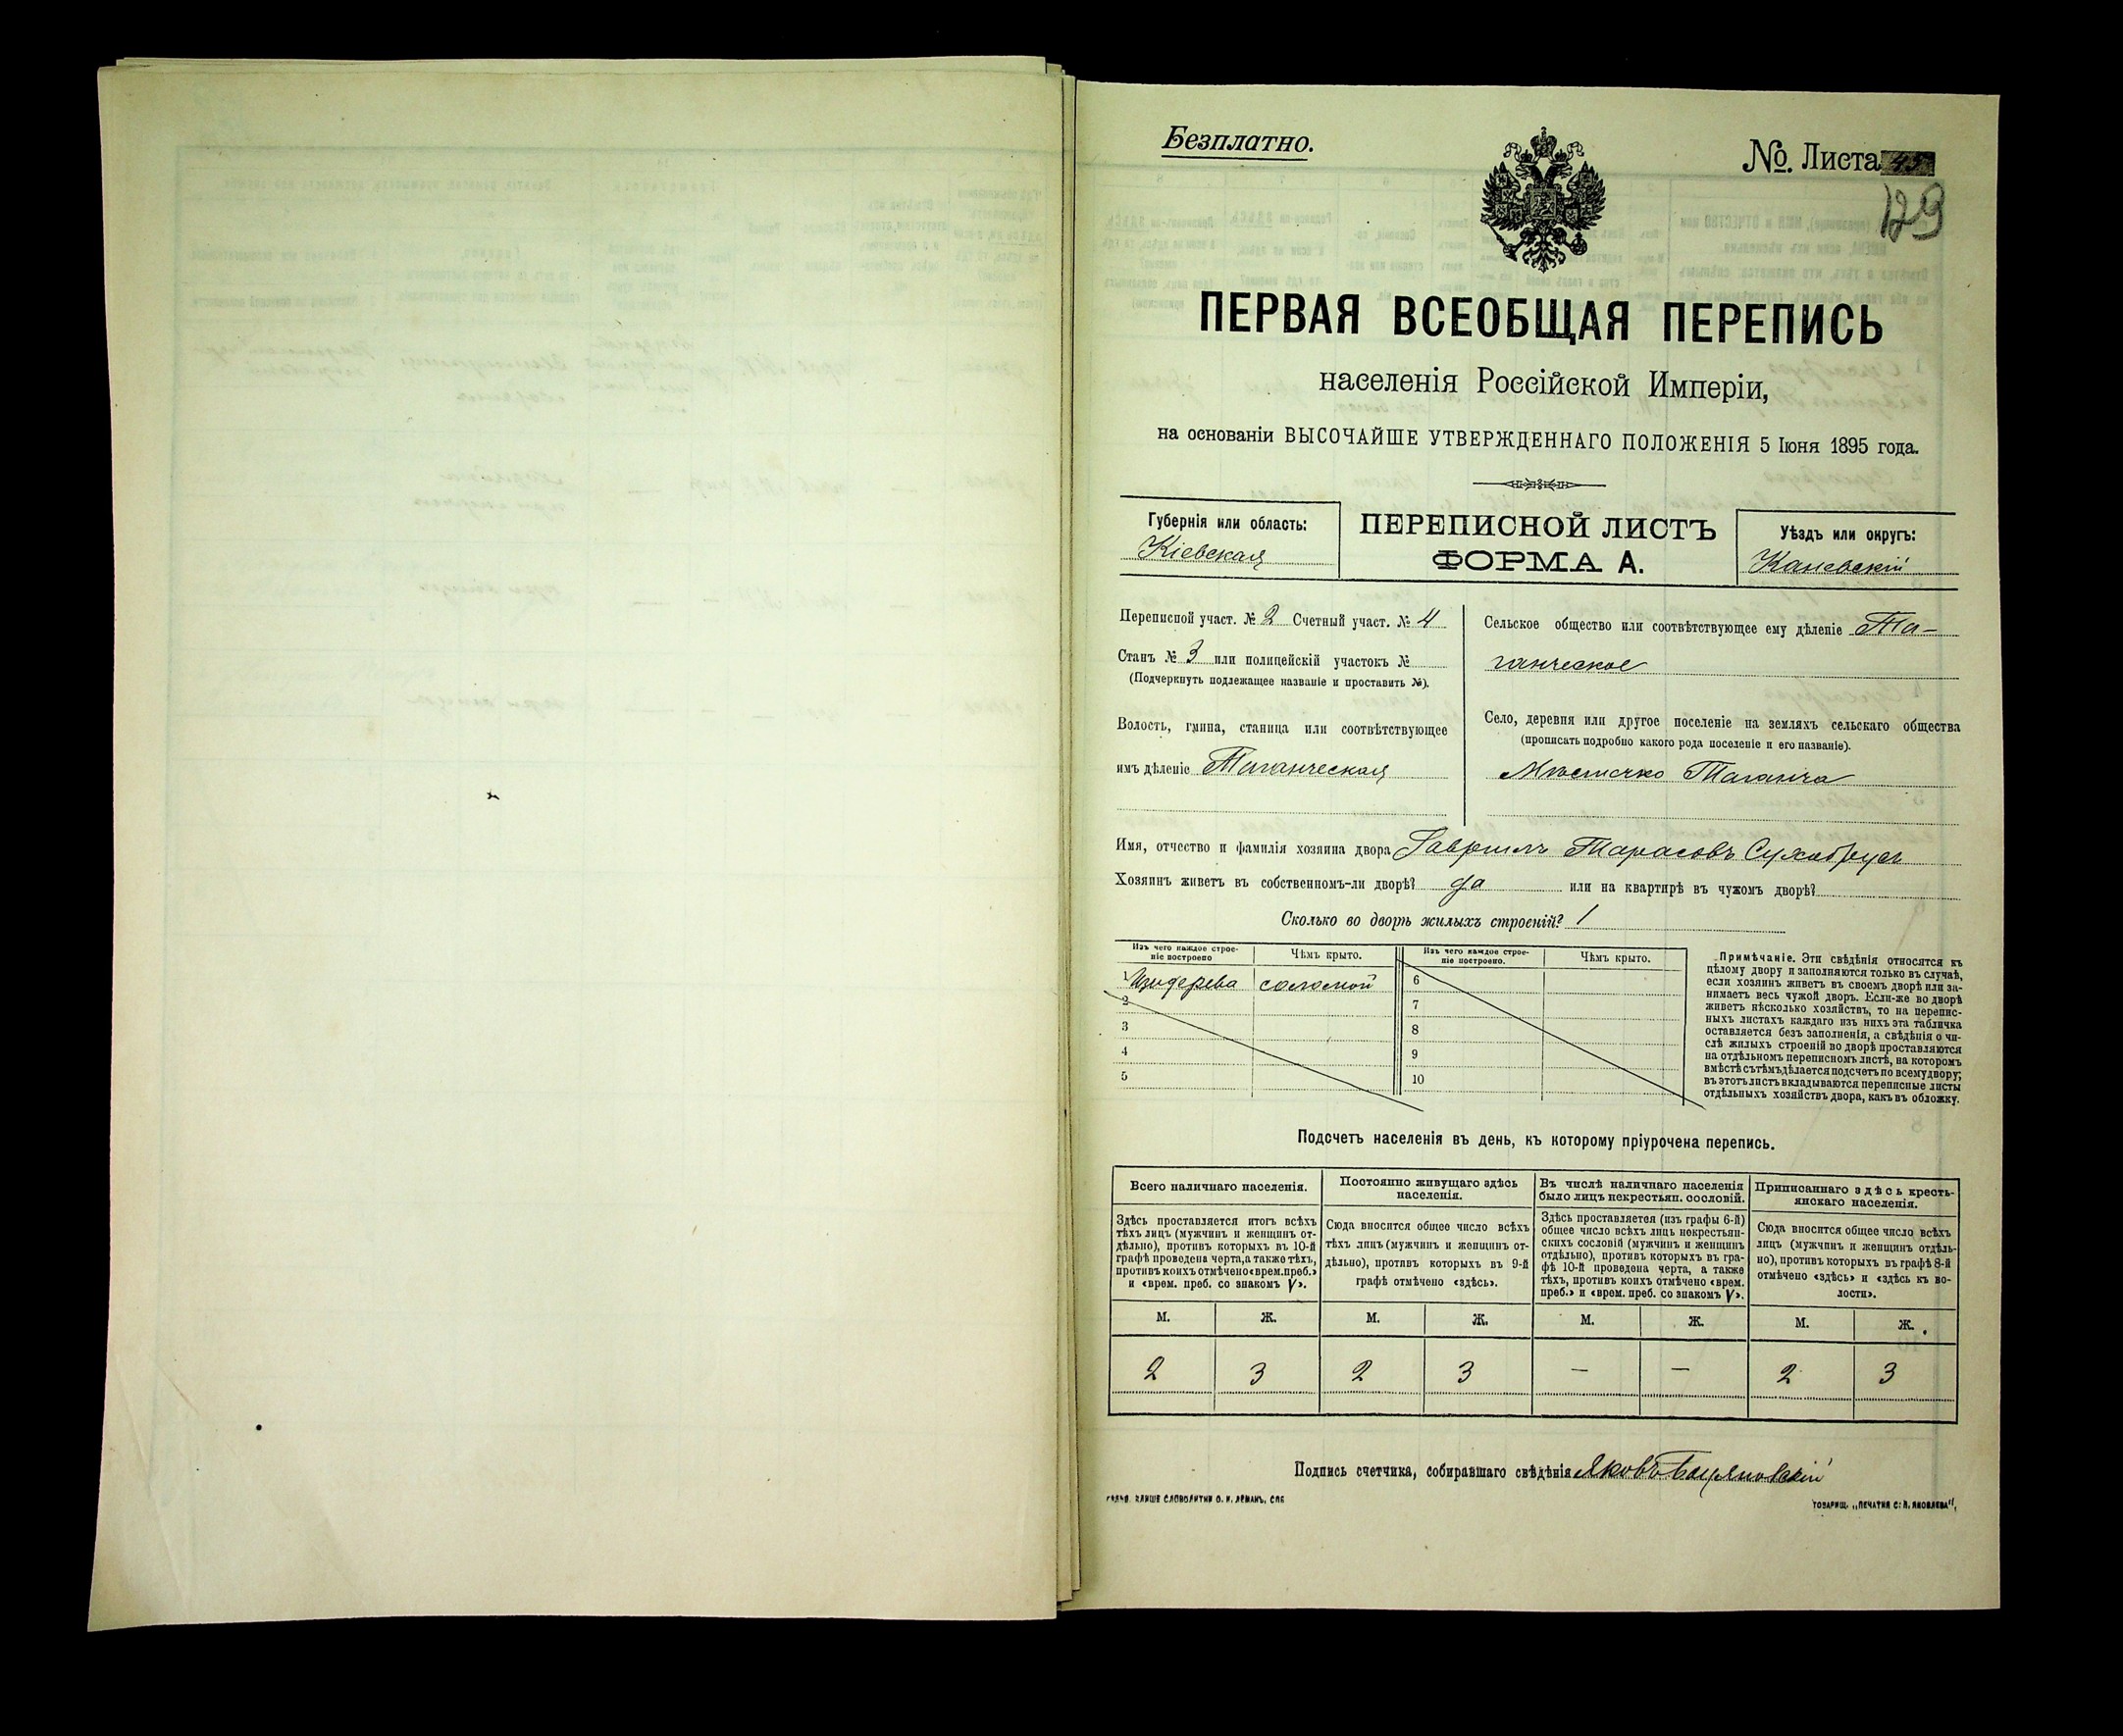 Безплатно.
№ Листа 45
129
ПЕРВАЯ ВСЕОБЩАЯ ПЕРЕПИСЬ
населенія Россійской Имперіи,
на основаніи ВЫСОЧАЙШЕ УТВЕРЖДЕННАГО ПОЛОЖЕНІЯ 5 Іюня 1895 года.
Губернія или область:
Кіевская
ПЕРЕПИСНОЙ ЛИСТЪ
ФОРМА А.
Уѣздъ или округъ:
Каневскій
Переписной участ. № 2 Счетный участ. № 4
Станъ № 3 или полицейскій участокъ №
(Подчеркнуть подлежащее названіе и проставить №).
Волость, гмина, станица или соотвѣтствующее
имъ дѣленіе Таганческая
Сельское общество или соотвѣтствующее ему дѣленіе Та-
ганческое
Село, деревня или другое поселеніе на земляхъ сельскаго общества
(прописать подробно какого рода поселеніе и его названіе).
Мѣстечко Таганча
Имя, отчество и фамилія хозяина двора Гавріилъ Тарасовъ Сухобрусъ
Хозяинъ живетъ въ собственномъ-ли дворѣ? да или на квартирѣ въ чужомъ дворѣ?
Сколько во дворѣ жилыхъ строеній? 1
Изъ чего каждое строе-
ніе построено
Чѣмъ крыто.
Изъ чего каждое строе-
ніе построено.
Чѣмъ крыто.
1 Изъ дерева соломой
2
3
4
5
6
7
8
9
10
Примѣчаніе. Эти свѣдѣнія относятся къ
цѣлому двору и заполняются только въ случаѣ,
если хозяинъ живетъ въ своемъ дворѣ или за-
нимаетъ весь чужой дворъ. Если-же во дворѣ
живетъ нѣсколько хозяйствъ, то на перепис-
ныхъ листахъ каждаго изъ нихъ эта табличка
оставляется безъ заполненія, а свѣдѣнія о чи-
слѣ жилыхъ строеній во дворѣ проставляются
на отдѣльномъ переписномъ листѣ, на которомъ
вмѣстѣ съ тѣмъ дѣлается подсчетъ по всему двору;
въ этотъ листъ вкладываются переписные листы
отдѣльныхъ хозяйствъ двора, какъ въ обложку.
Подсчетъ населенія въ день, къ которому пріурочена перепись.
Всего наличнаго населенія.
Здѣсь проставляется итогъ всѣхъ
тѣхъ лицъ (мужчинъ и женщинъ от-
дѣльно), противъ которыхъ въ 10-й
графѣ проведена черта, а также тѣхъ,
противъ коихъ отмѣчено «врем. преб.»
и «врем. преб. со знакомъ V».
Постоянно живущаго здѣсь
населенія.
Сюда вносится общее число всѣхъ
тѣхъ лицъ (мужчинъ и женщинъ от-
дѣльно), противъ которыхъ въ 9-й
графѣ отмѣчено «здѣсь».
Въ числѣ наличнаго населенія
было лицъ некрестьян. сословій.
Здѣсь проставляется (изъ графы 6-й)
общее число всѣхъ лицъ некрестьян-
скихъ сословій (мужчинъ и женщинъ
отдѣльно), противъ которыхъ въ гра-
фѣ 10-й проведена черта, а также
тѣхъ, противъ коихъ отмѣчено «врем.
преб.» и «врем. преб. со знакомъ V».
Приписаннаго здѣсь кресть-
янскаго населенія.
Сюда вносится общее число всѣхъ
лицъ (мужчинъ и женщинъ отдѣль-
но), противъ которыхъ въ графѣ 8-й
отмѣчено «здѣсь» и «здѣсь къ во-
лости».
М. Ж. М. Ж. М. Ж. М. Ж.
2 3 2 3 — — 2 3
Подпись счетчика, собиравшаго свѣдѣнія Яковъ
КЛИШЕ СЛОВОЛИТНИ О. И. ЛЕМАНЪ, СПБ
ТОВАРИЩ. „ПЕЧАТНЯ С. П. ЯКОВЛЕВА",